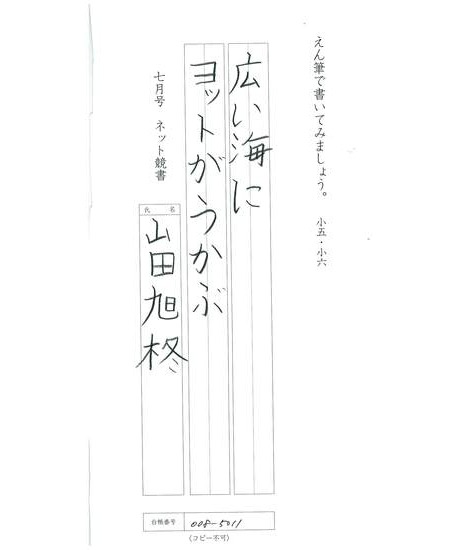 えん筆で書いてみましょう。 小五・小六
広い海に
ヨットがうかぶ
七月号 ネット競書
氏名
山田旭柊
台帳番号 008-5011
(コピー不可)